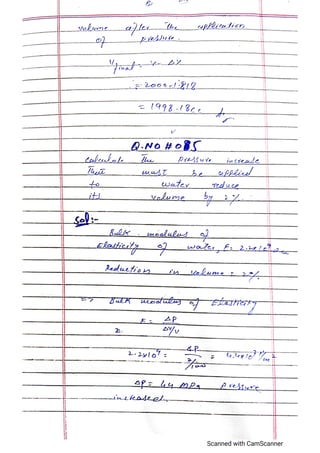 volume after the application
of pressure.
V final = V - ΔV
= 2000 - 1.818
= 1998.18cc
Q.NO # 05
calculate The pressure increase
That must be applied
to water reduce
its volume by 2%.
Sol:-
Bulk modulus of
Elasticity of water, E = 2.2x10⁹
Reduction in volume = 2%.
=> Bulk modulus of Elasticity
E = ΔP
ΔV/V
2.2x10⁹ = ΔP
2/100
ΔP = 44 MPa pressure
increased.
Scanned with CamScanner